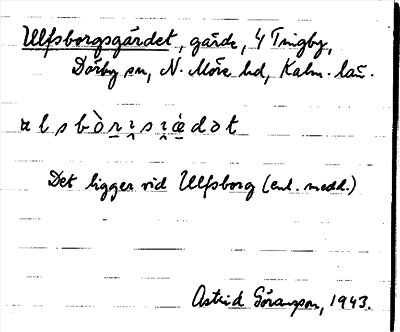 Ulfsborgsgärdet, gärde, 4 Tingby,
Dörby sn, N. Möre hd, Kalm. län.
Det ligger vid Ulfsborg (enl. medd.)
Astrid Göransson, 1943.